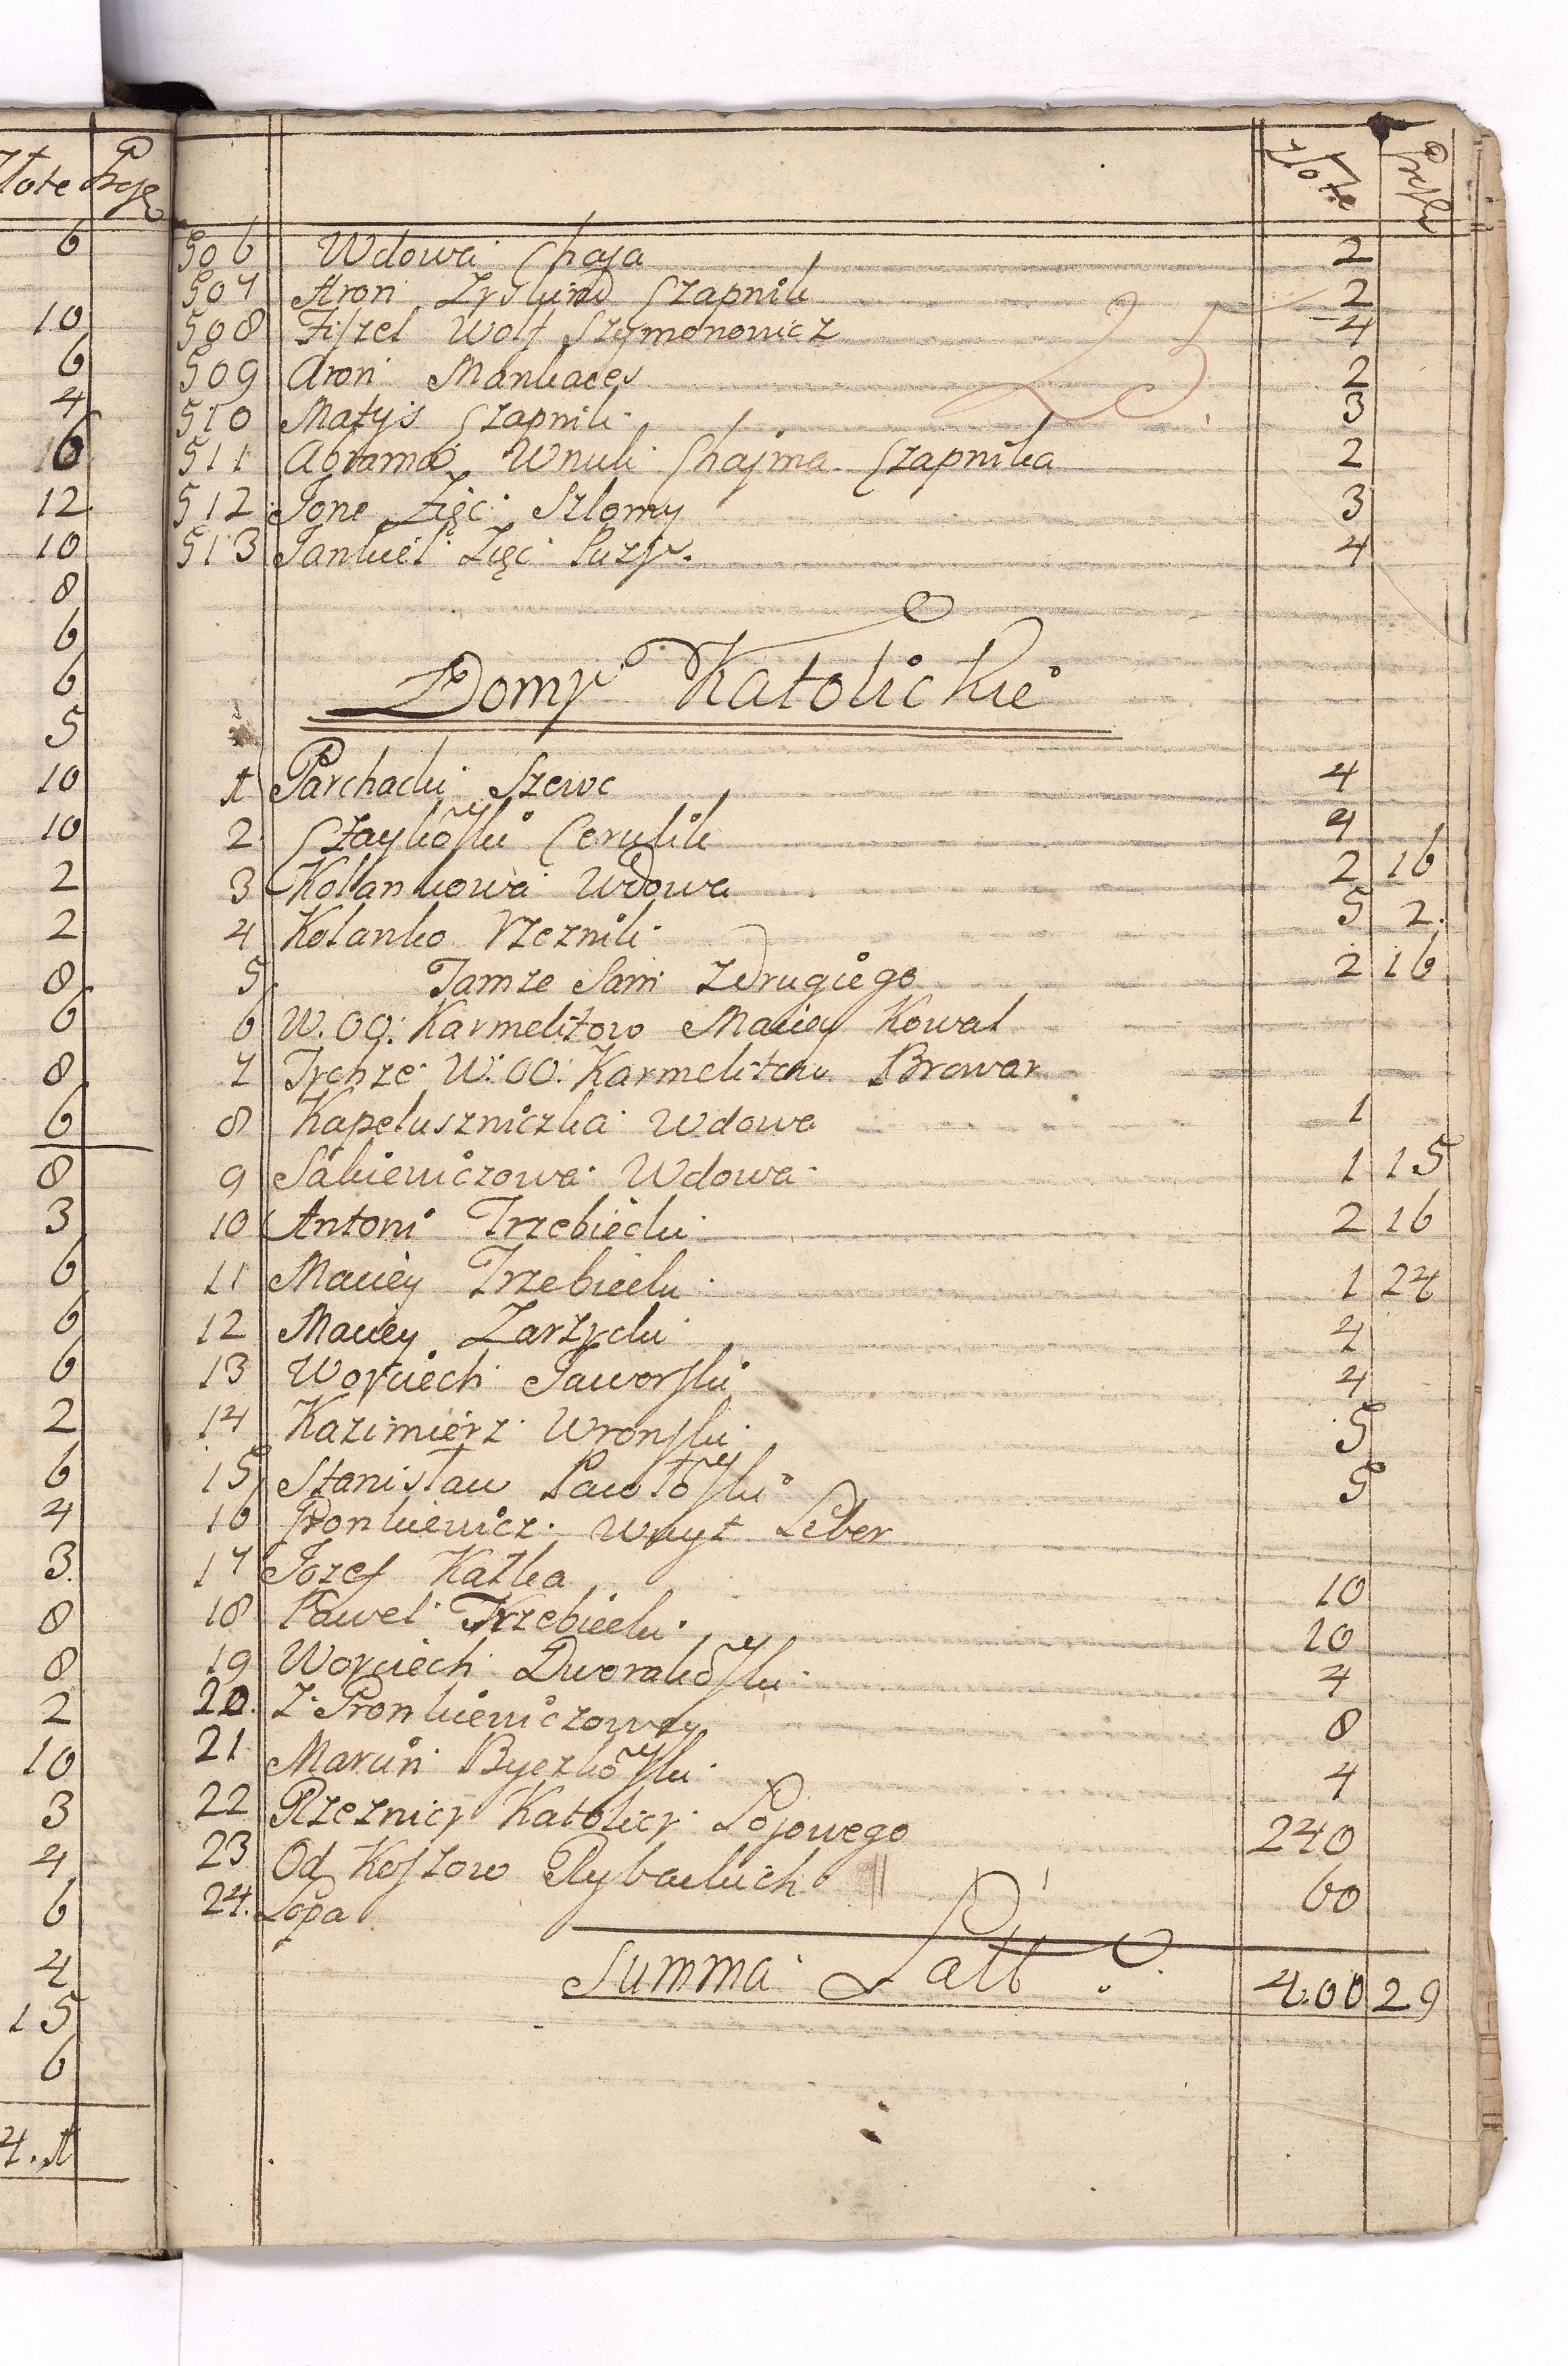 Złote Grosze
6
10
6
4
10
12
10
8
6
6
5
10
10
2
2
8
6
8
6
8
3
6
6
6
2
6
4
3
8
8
2
10
3
4
6
4
15
6
4.1
Złote Grosze
506 Wdowa Chaja 2
507 Aron Zyskind Czapnik 2
508 Fiszel Wolf Szymonowicz 4
25
509 Aron Mankaces 2
510 Matys Czapnik 3
511 Abrama Wnuk Chajma Czapnika 2
512 Jone Zięć Szlomy 3
513 Jankiel Zięć 4
Domy Katolickie
1 Parchacki Szewc 4
2 Czaykoski Cerulik 4
3 Kolankowa Wdowa 2 16
4 Kolanko Rzeznik 5 2
5 Tamze Sam zdrugiego 2 16
6 W. OO. Karmelitow Maciey Kowal
7 Tychze W. OO. Karmelitow Browar
8 Kapeluszniczka Wdowa 1
9 Sakiewiczowa Wdowa 1 15
10 Antoni Trzebiecki 2 16
11 Maciey Trzebiecki 1 24
12 Maciey Zarzycki 4
13 Woyciech Jaworski 4
14 Kazimierz Wronski 5
15 Stanisław Pawłoski 5
16 Pronkiewicz Wuyt Leber
17 Jozef Kazka 10
18 Paweł Trzebiecki 10
19 Woyciech Dworakoski 4
20. Z. Pronkiewiczowey 8
21 Marcin Byczkoski 4
22 Rzeznicy Katolicy Łojowego 240
23 Od Koszow Rybackich 60
24. Łopa
Summa Latt 400 29